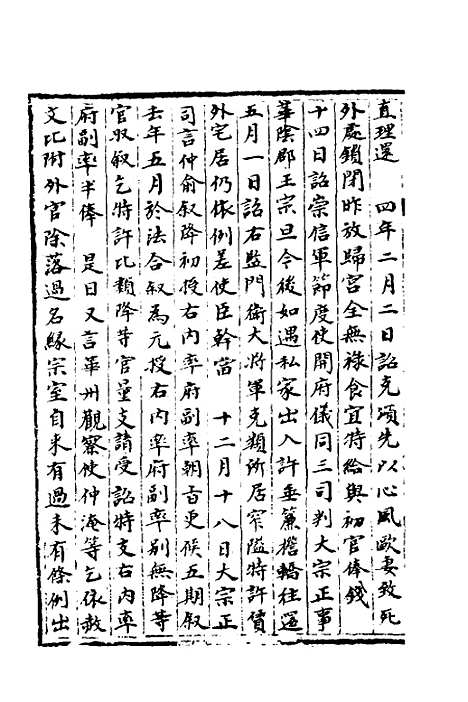 直理選　四年二月二日詔克頌先以心風毆妻致死
外處鎖閉昨放歸宫全無祿食宜特給與初官俸錢
十四日詔崇信軍節度使開府儀同三司判大宗正事
華陰郡王宗旦今後如遇私家出入許垂簾檐轎往還
五月一日詔右監門衛大將軍克類所居窄隘特許賃
外宅居仍依例差使臣幹當　十二月十八日大宗正
司言仲俞叙降初授右内率府副率朝㫖更候五期叙
壬年五月於法合叙為元授右内率府副率别無降等
官叙叙乞特許比類降等官量支請受詔特支右内率
府副率半俸　是日又言華州觀察使仲淹等乞依赦
文比附外官除落過名緣宗室自来有過未有條例出